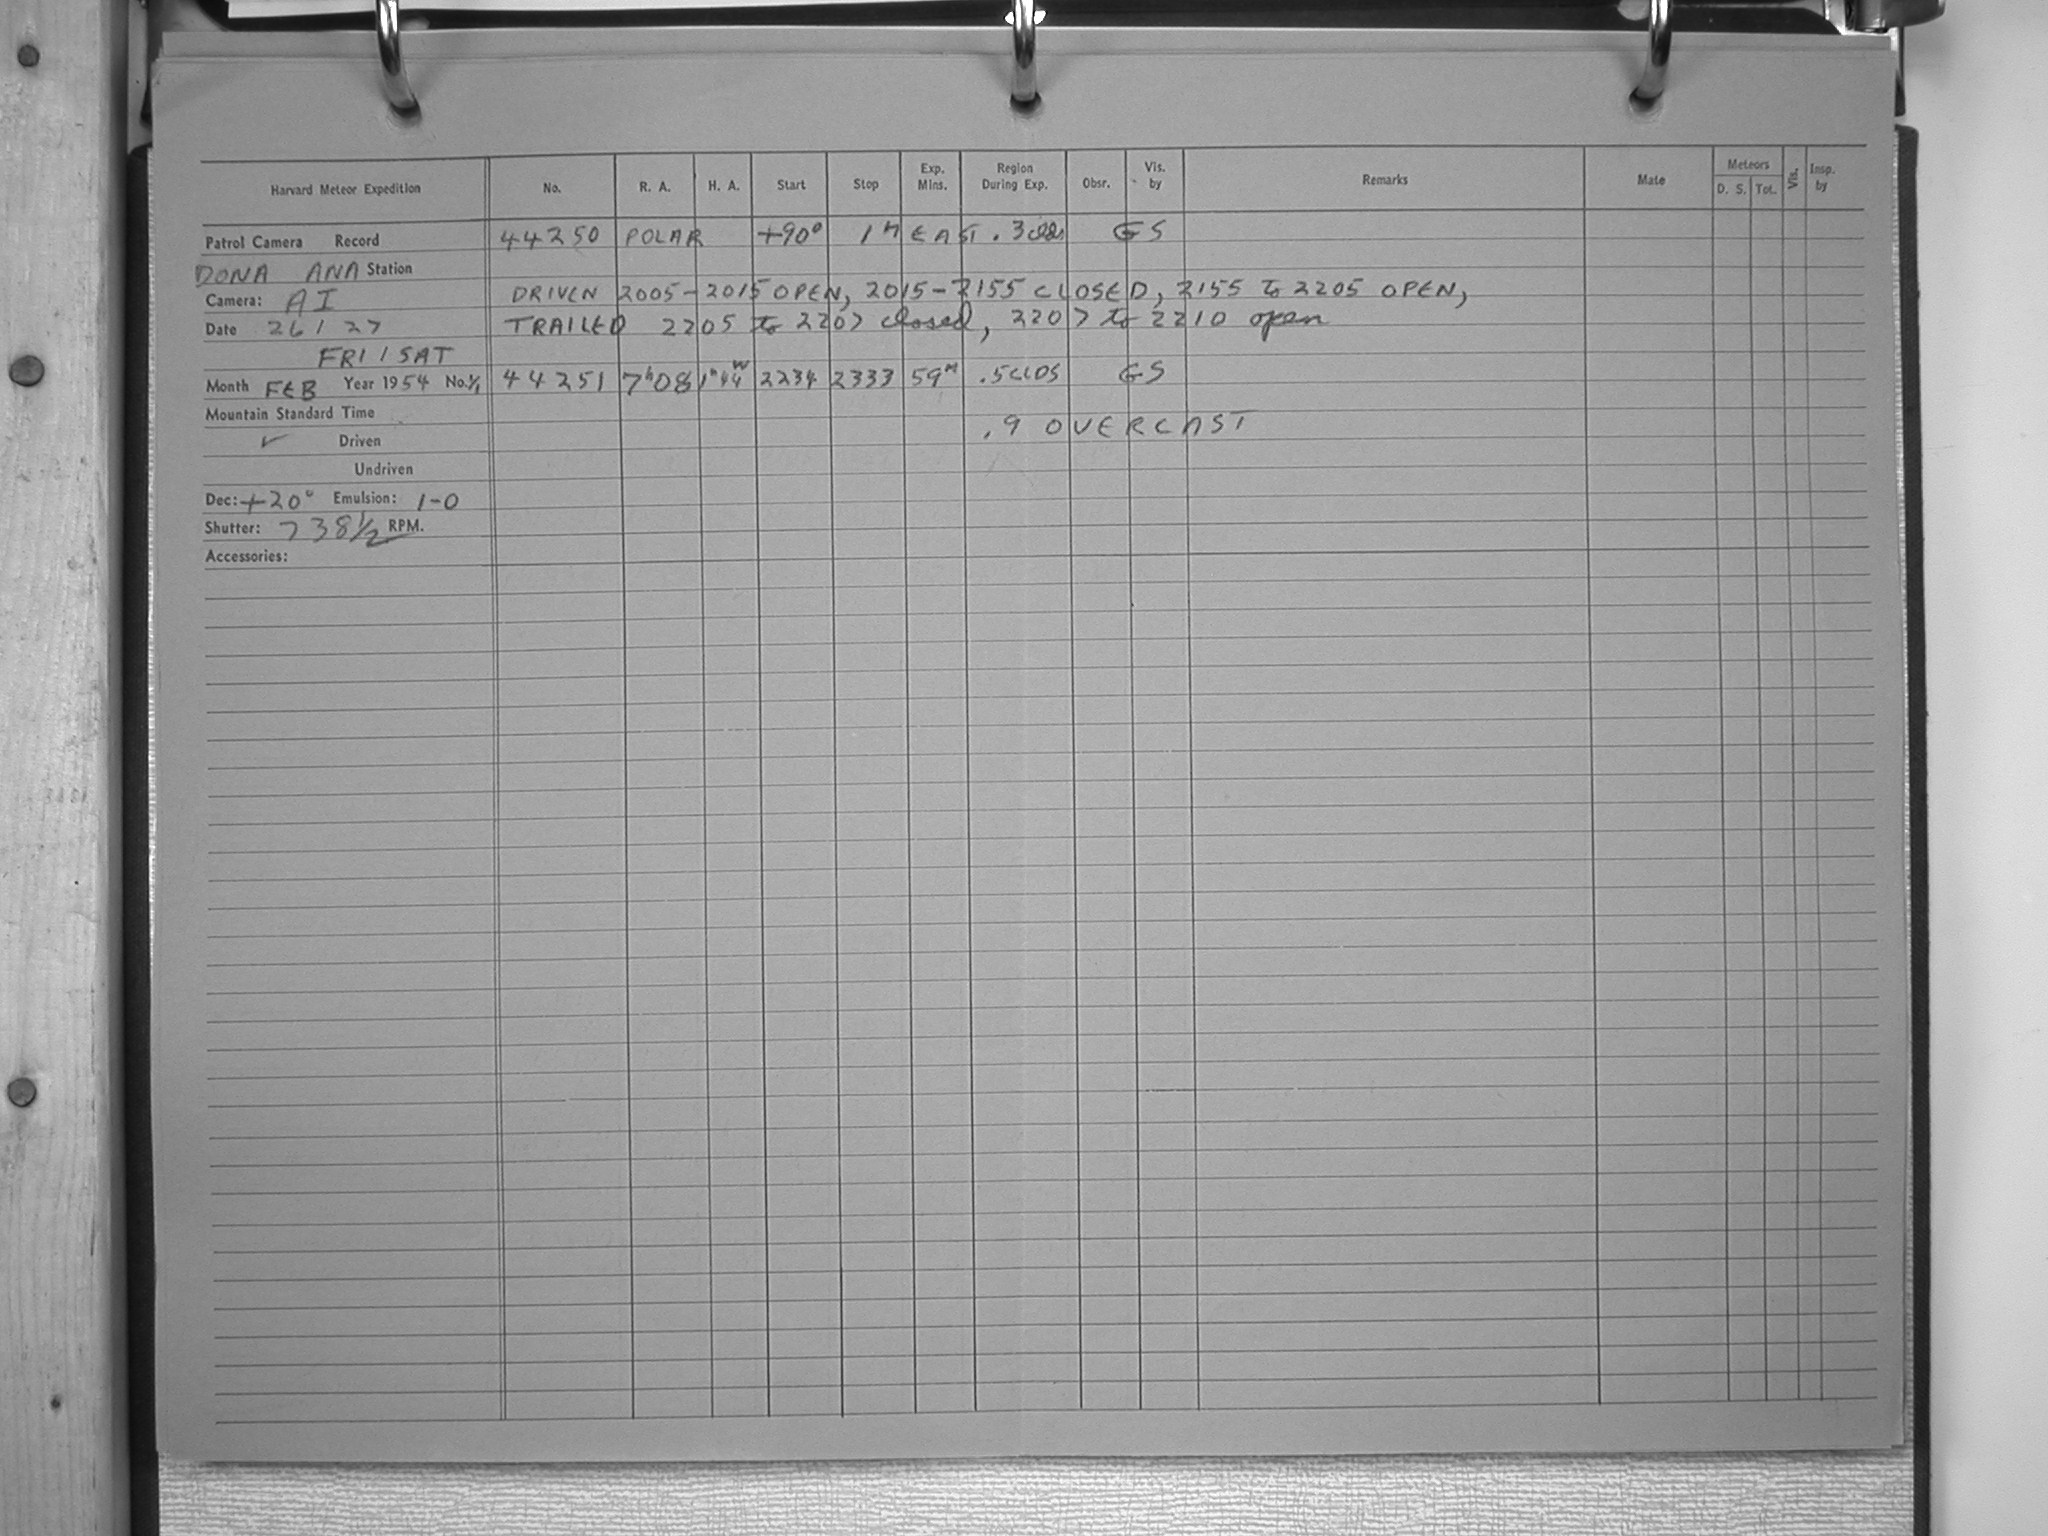 Harvard Meteor Expedition No. R. A. H. A. Start Stop Exp. Mins. Region During Exp. Obsr. Vis. by Remarks Mate Meteors D. S. Tot. Vis. Insp. by
Patrol Camera Record 44250 POLAR +90° 1h EAST .3 clds GS
DONA ANA Station
Camera: AI DRIVEN 2005-2015 OPEN, 2015-2155 CLOSED, 2155 to 2205 OPEN,
Date 26/27 TRAILED 2205 to 2207 closed, 2207 to 2210 open
FRI/SAT
Month FEB Year 1954 No. 1/1 44251 7h08 1h44W 2234 2333 59M .5 CLDS GS
Mountain Standard Time
.9 OVERCAST
✓ Driven
Undriven
Dec: +20° Emulsion: 1-0
Shutter: 738½ RPM.
Accessories: